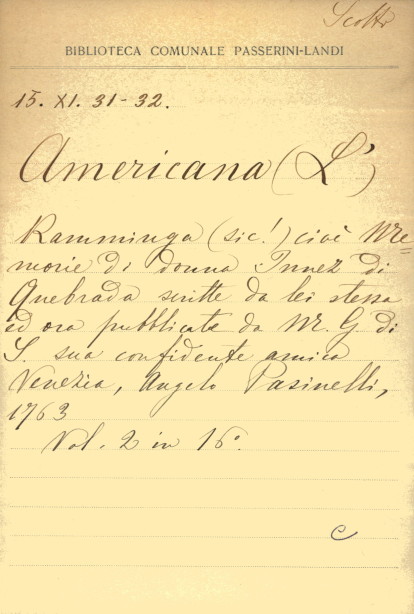 Scotti
BIBLIOTECA COMUNALE PASSERINI-LANDI
15. XI. 31-32.
Americana (L')
Ramminga (sic!) cioè Me=
morie di donna Innez di
Quebrada scritte da lei stessa
ed ora pubblicate da M. G di
S. sua confidente amica
Venezia, Angelo Pasinelli,
1763
Vol. 2 in 16°.
C